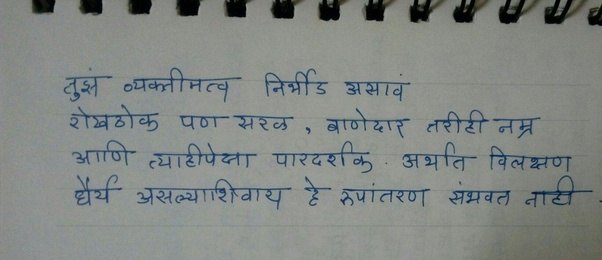 तुझं व्यक्तीमत्व निर्भीड असावं
रोखठोक पण सरळ, बाणेदार तरीही नम्र
आणि त्याहीपेक्षा पारदर्शक. अर्थात विलक्षण
धैर्य असल्याशिवाय हे रुपांतरण संभवत नाही.